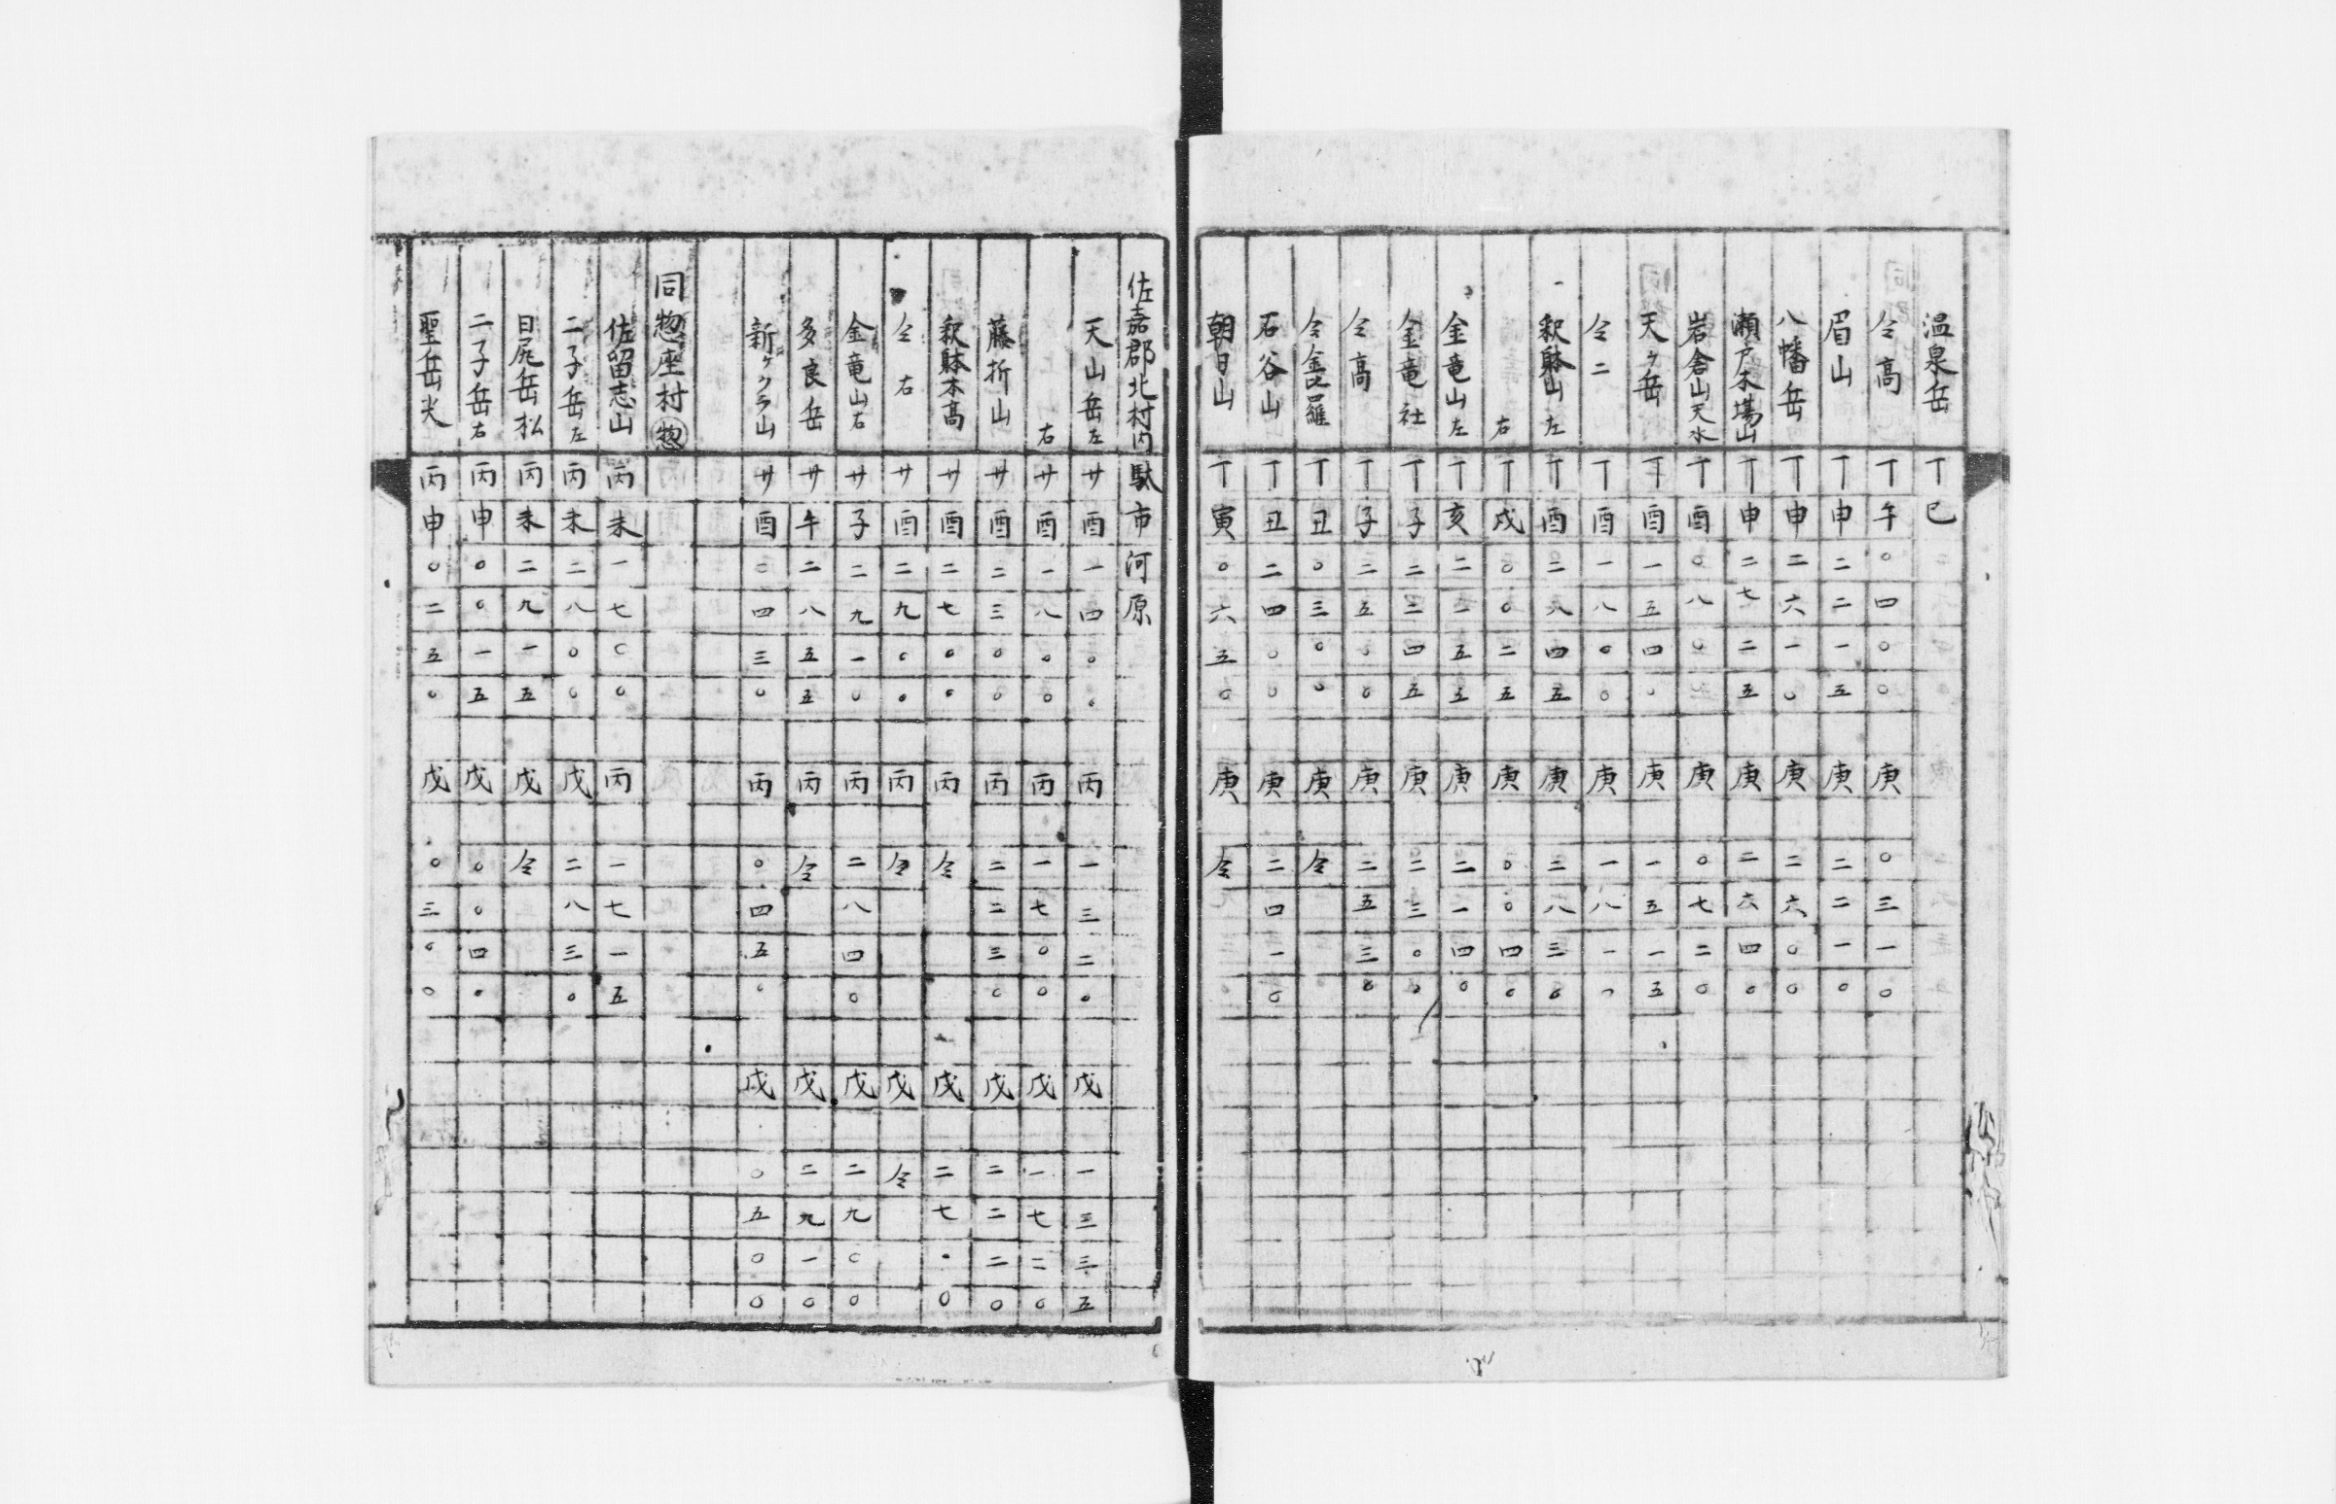 温泉岳 丁 巳
仝高 丁 午 〇 四 〇 〇 庚 〇 三 一 〇
眉山 丁 申 二 二 一 五 庚 二 二 一 〇
八幡岳 丁 申 二 六 一 〇 庚 二 六 〇 〇
瀬戸木場山 丁 申 二 七 二 五 庚 二 六 四 〇
岩倉山天水 丁 酉 〇 八 〇 庚 〇 七 二 〇
天ヶ岳 丁 酉 一 五 四 〇 庚 一 五 一 五
仝二 丁 酉 一 八 〇 〇 庚 一 八 一 〇
釈躰山左 丁 酉 二 八 四 五 庚 二 八 三 〇
右 丁 戌 〇 〇 二 五 庚 〇 〇 四 〇
金竜山左 丁 亥 二 一 五 五 庚 二 一 四 〇
金竜社 丁 子 二 二 四 五 庚 二 三 〇 〇
仝高 丁 子 二 五 〇 〇 庚 二 五 三 〇
仝金毘羅 丁 丑 〇 三 〇 〇 庚 仝
石谷山 丁 丑 二 四 〇 〇 庚 二 四 一 〇
朝日山 丁 寅 〇 六 五 〇 庚 仝
佐嘉郡北村内駄市河原
天山岳左 廿 酉 一 四 〇 〇 丙 一 三 二 〇 戊 一 三 三 五
右 廿 酉 一 八 〇 〇 丙 一 七 〇 〇 戊 一 七 二 〇
藤折山 廿 酉 二 三 〇 〇 丙 二 二 三 〇 戊 二 二 二 〇
釈躰本高 廿 酉 二 七 〇 〇 丙 仝 戊 二 七 〇 〇
仝右 廿 酉 二 九 〇 〇 丙 仝 戊 仝
金竜山右 廿 子 二 九 一 〇 丙 二 八 四 〇 戊 二 九 〇 〇
多良岳 廿 午 二 八 五 五 丙 仝 戊 二 九 一 〇
新ヶクラ山 廿 酉 〇 四 三 〇 丙 〇 四 五 〇 戊 〇 五 〇 〇
同惣座村㊗惣
佐留志山 丙 未 一 七 〇 〇 丙 一 七 一 五
二子岳左 丙 未 二 八 〇 〇 戊 二 八 三 〇
日尾岳松 丙 未 二 九 一 五 戊 仝
二子岳右 丙 申 〇 〇 一 五 戊 〇 〇 四 〇
聖岳尖 丙 申 〇 二 五 〇 戊 〇 三 〇 〇